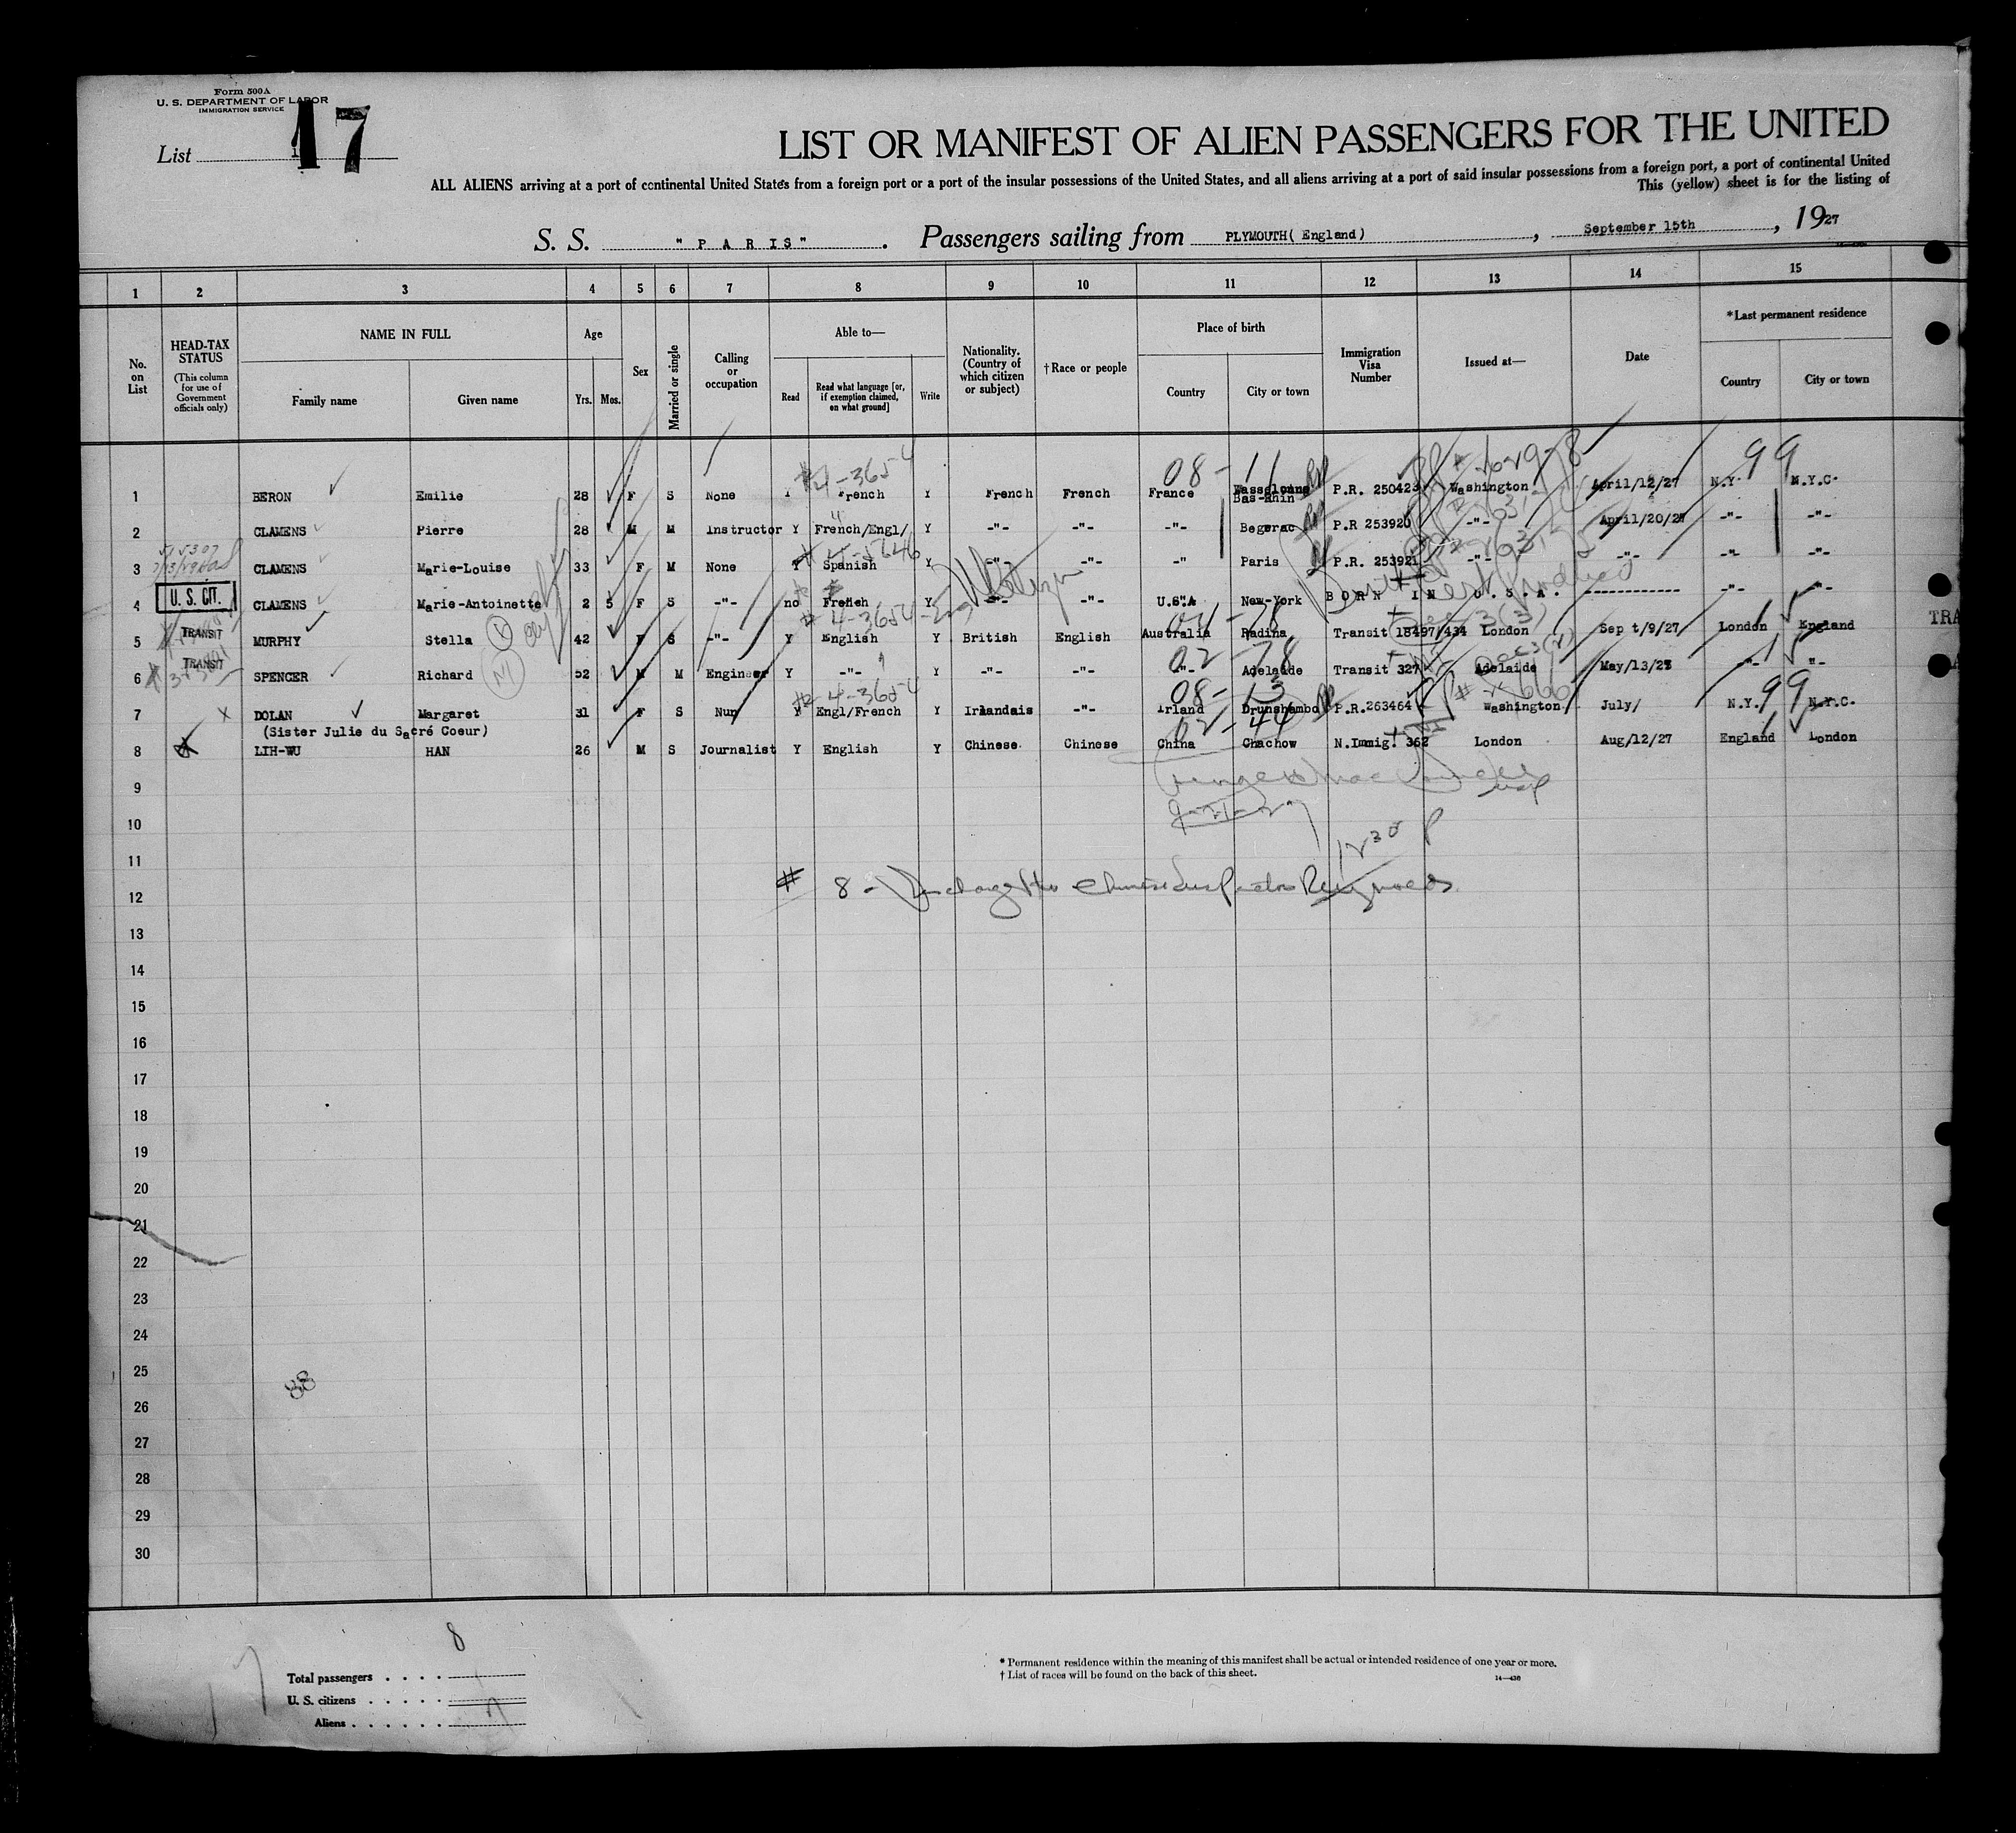 Form 500A
U. S. DEPARTMENT OF LABOR
IMMIGRATION SERVICE
List 17
LIST OR MANIFEST OF ALIEN PASSENGERS FOR THE UNITED
ALL ALIENS arriving at a port of continental United States from a foreign port or a port of the insular possessions of the United States, and all aliens arriving at a port of said insular possessions from a foreign port, a port of continental United
This (yellow) sheet is for the listing of
S. S. "PARIS". Passengers sailing from PLYMOUTH( England) , September 15th , 1927
1 2 3 4 5 6 7 8 9 10 11 12 13 14 15
No. on List
HEAD-TAX STATUS (This column for use of Government officials only)
NAME IN FULL
Family name Given name
Age
Yrs. Mos.
Sex
Married or single
Calling or occupation
Able to—
Read Read what language [or, if exemption claimed, on what ground] Write
Nationality. (Country of which citizen or subject)
†Race or people
Place of birth
Country City or town
Immigration Visa Number
Issued at—
Date
*Last permanent residence
Country City or town
#4-3654 08-11 99
1 BERON Emilie 28 F S None Y French Y French French France Bas-Rhin P.R. 250423 Washington April/12/27 N.Y. N.Y.C.
2 CLAMENS Pierre 28 M M Instructor Y French/Engl/ Y -"- -"- -"- Begerac P.R 253920 -"- April/20/27 -"- -"-
3 CLAMENS Marie-Louise 33 F M None Y Spanish Y -"- -"- -" Paris P.R. 253921 -"- -"- -"- -"-
4 U. S. CIT. CLAMENS Marie-Antoinette 2 5 F S -"- no French Y -"- -"- U.S.A New-York BORN IN U.S.A. ------------ -"- -"-
# 4-3654
5 TRANSIT MURPHY Stella 42 F S -"- Y English Y British English Australia Radina Transit 18497/434 London Sep t/9/27 London England
02-78
6 TRANSIT SPENCER Richard 52 M M Engineer Y -"- Y -"- -"- -"- Adelaide Transit 327 Adelaide May/13/27 -"- -"-
# 4-3654 08-13 99
7 X DOLAN Margaret 31 F S Nun Y Engl/French Y Irlandais -"- Irland Drunshambo P.R.263464 Washington July/ N.Y. N.Y.C.
(Sister Julie du Sacré Coeur)
02-44
8 LIH-WU HAN 26 M S Journalist Y English Y Chinese Chinese China Chachow N.Immig. 362 London Aug/12/27 England London
9
10
11
12 # 8 -
13
14
15
16
17
18
19
20
21
22
23
24
25
26
27
28
29
30
TRA
Total passengers . . . . 8
U. S. citizens . . . . . 1
Aliens . . . . . . 7
* Permanent residence within the meaning of this manifest shall be actual or intended residence of one year or more.
† List of races will be found on the back of this sheet.
14—430